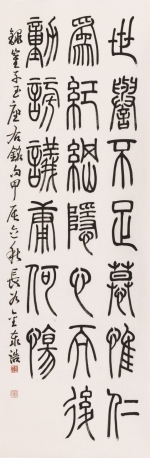 世譽不足慕惟仁
為紀綱隱心而後
動謗議庸何傷
錄崔子玉座右銘句甲辰之秋長沙金葆浩